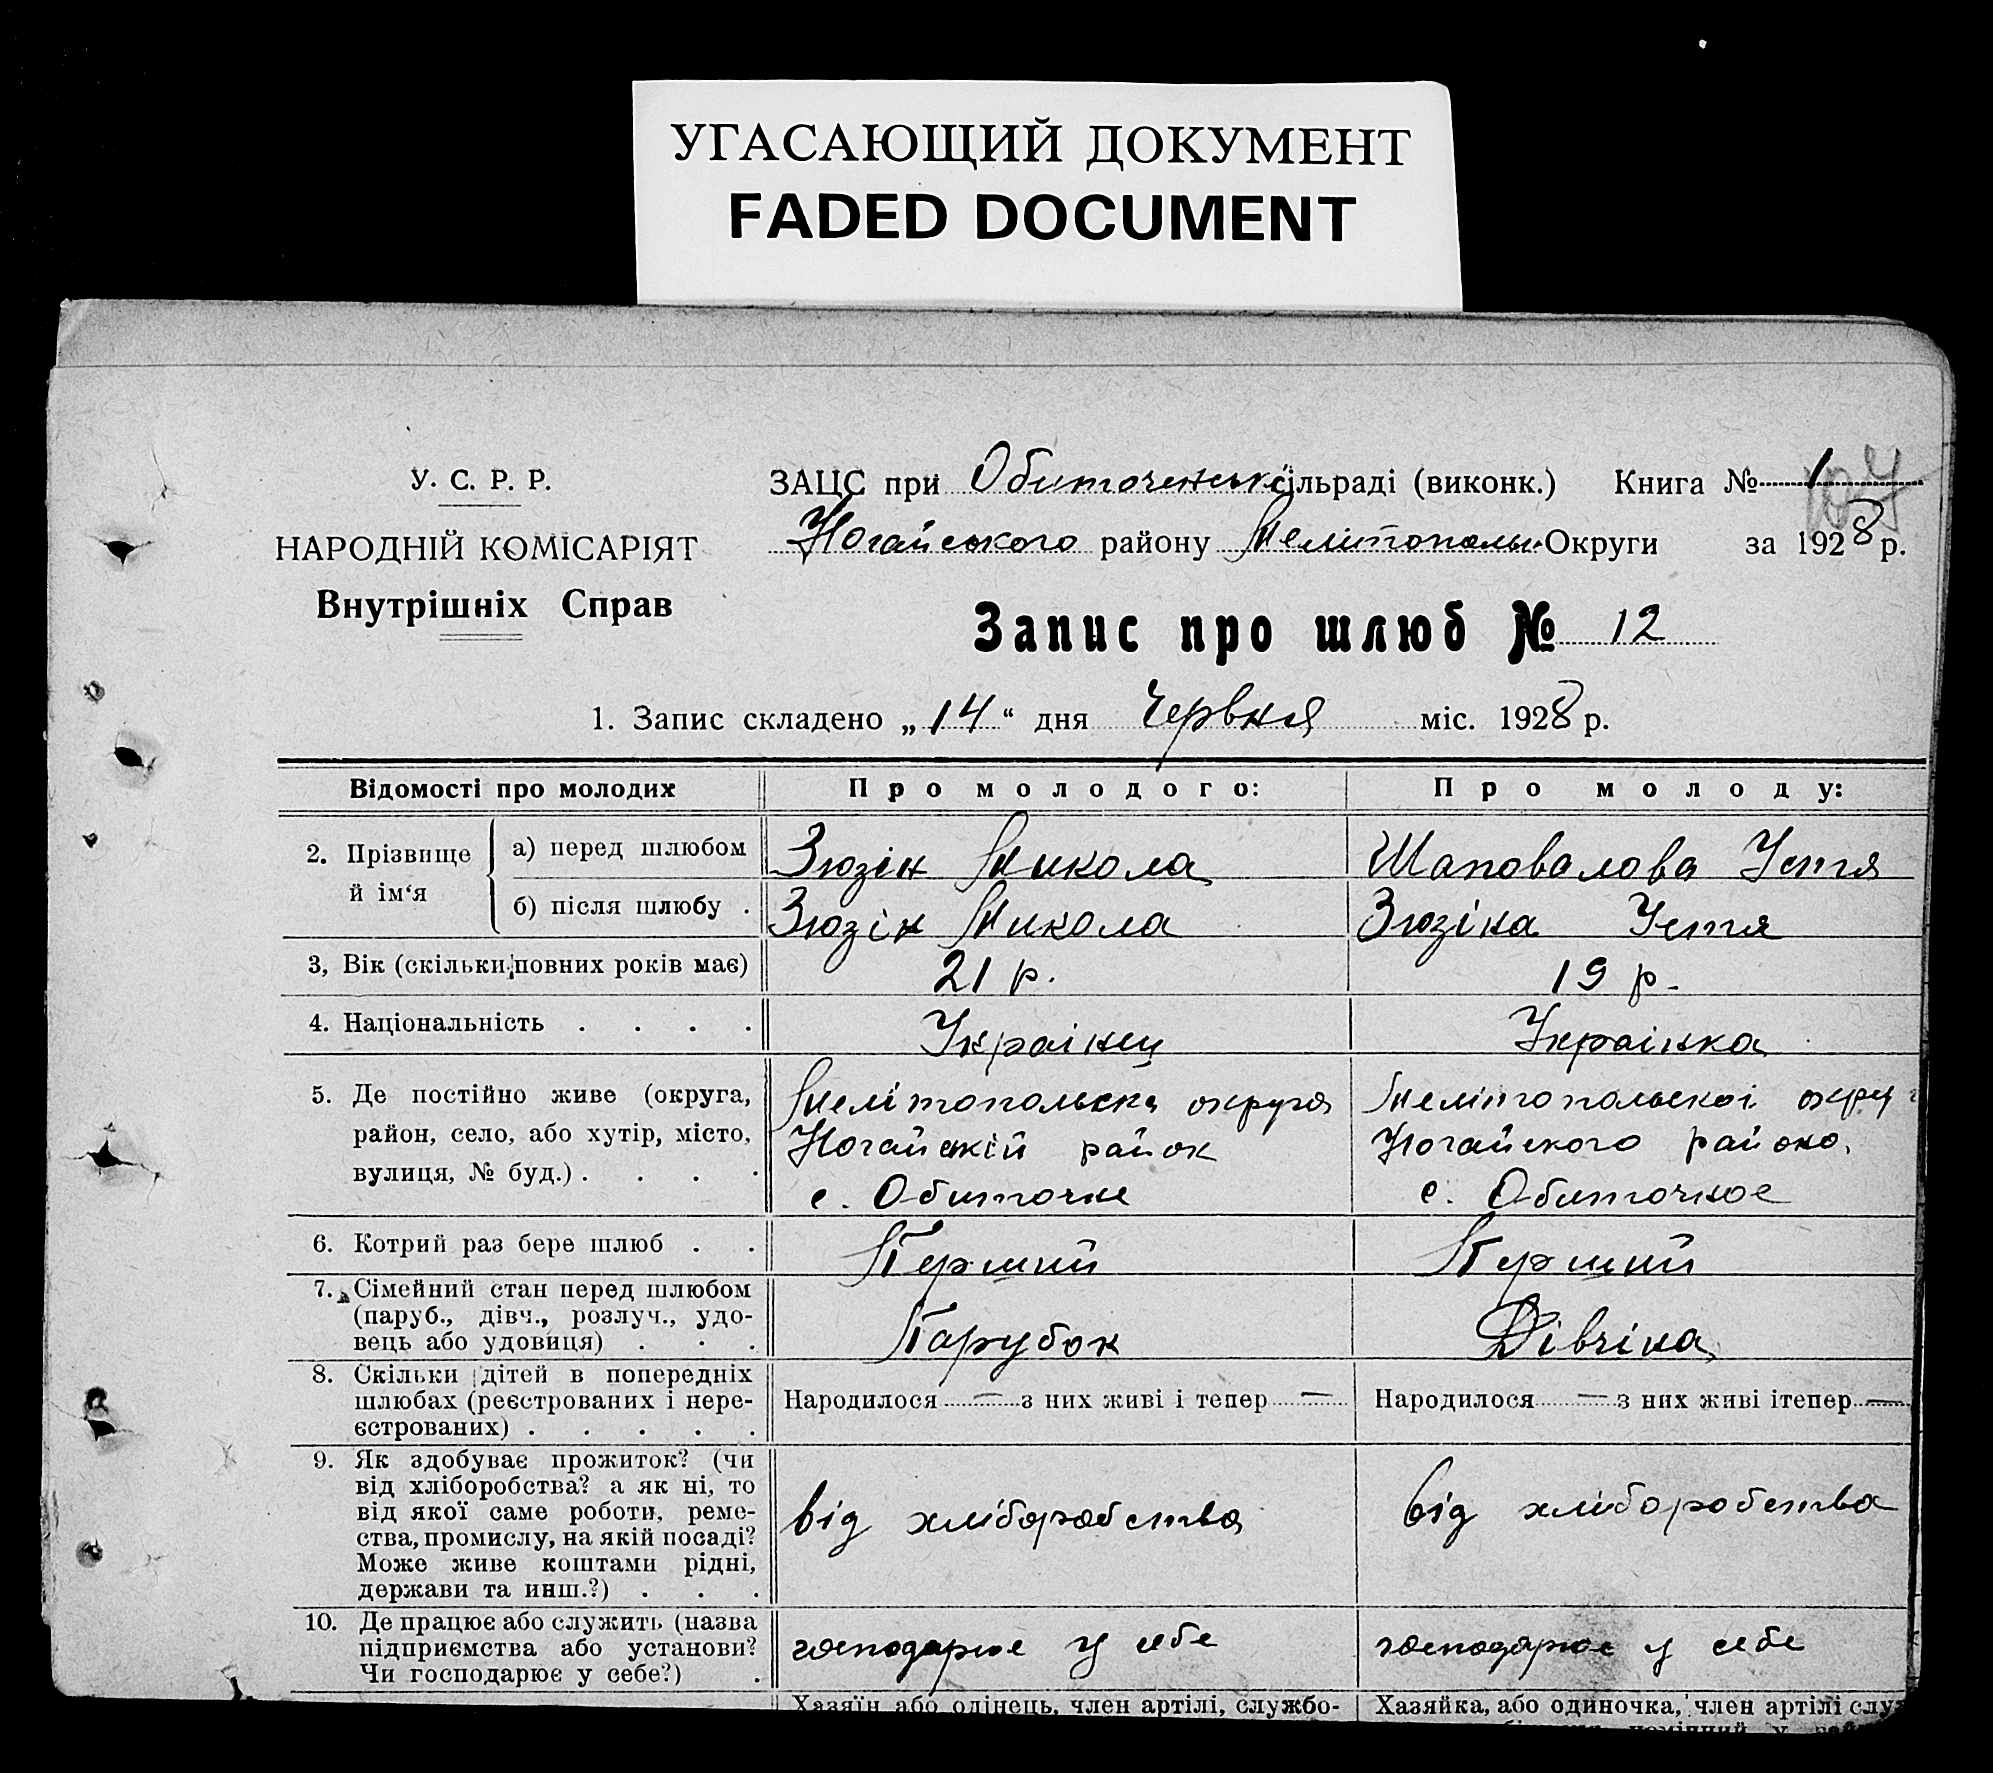 УГАСАЮЩИЙ ДОКУМЕНТ
FADED DOCUMENT
У. С. Р. Р.
НАРОДНІЙ КОМІСАРІЯТ
Внутрішніх Справ
ЗАЦС при Обиточенській сільраді (виконк.) Книга № 1
Ногайського району Мелітопольс. Округи за 1928 р.
Запис про шлюб № 12
1. Запис складено „14“ дня Червня міс. 1928 р.
Відомості про молодих Про молодого: Про молоду:
2. Прізвище й ім‘я
а) перед шлюбом Зюзін Микола Шаповалова Устя
б) після шлюбу . Зюзін Микола Зюзіна Устя
3, Вік (скільки повних років має) 21 р. 19 р.
4. Національність . . . . Украінец Украінка
5. Де постійно живе (округа,
район, село, або хутір, місто,
вулиця, № буд.) . . . .
Мелітопольска округа
Ногайский район
с. Обиточне
Мелітопольскоі округ
Ногайского району.
с. Обиточное
6. Котрий раз бере шлюб . . Перший Перший
7. Сімейний стан перед шлюбом
(паруб., дівч., розлуч., удо-
вець або удовиця) . . .
Парубок Дівчіна
8. Скільки дітей в попередніх
шлюбах (реєстрованих і нере-
єстрованих) . . . . .
Народилося — з них живі і тепер —
Народилося — з них живі ітепер —
9. Як здобуває прожиток? (чи
від хліборобства? а як ні, то
від якої саме роботи, реме-
ства, промислу, на якій посаді?
Може живе коштами рідні,
держави та инш.?) . . .
від хліборобства
від хліборобства
10. Де працює або служить (назва
підприємства або установи?
Чи господарює у себе?) .
господарює у себе
господарює у себе
Хазяїн або одінець, член артілі, службо-
Хазяйка, або одиночка, член артілі служ